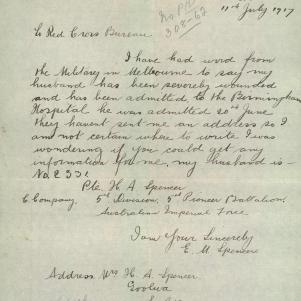 11th July 1917
To Red Cross Bureau
I have had word from
the Military in Melbourne to say my
husband has been severely wounded
and has been admitted to the Birmingham
Hospital he was admitted 20th June
they havent sent me an address so I
am not certain where to write I was
wondering if you could get any
information for me, my husband is -
No 2331
Pte. H A Spencer
C Company, 5th Division, 5th Pioneer Battalion,
Australian Imperial Force
I am Yours Sincerely
E. M Spencer
Address Mrs H. A. Spencer
Goolwa